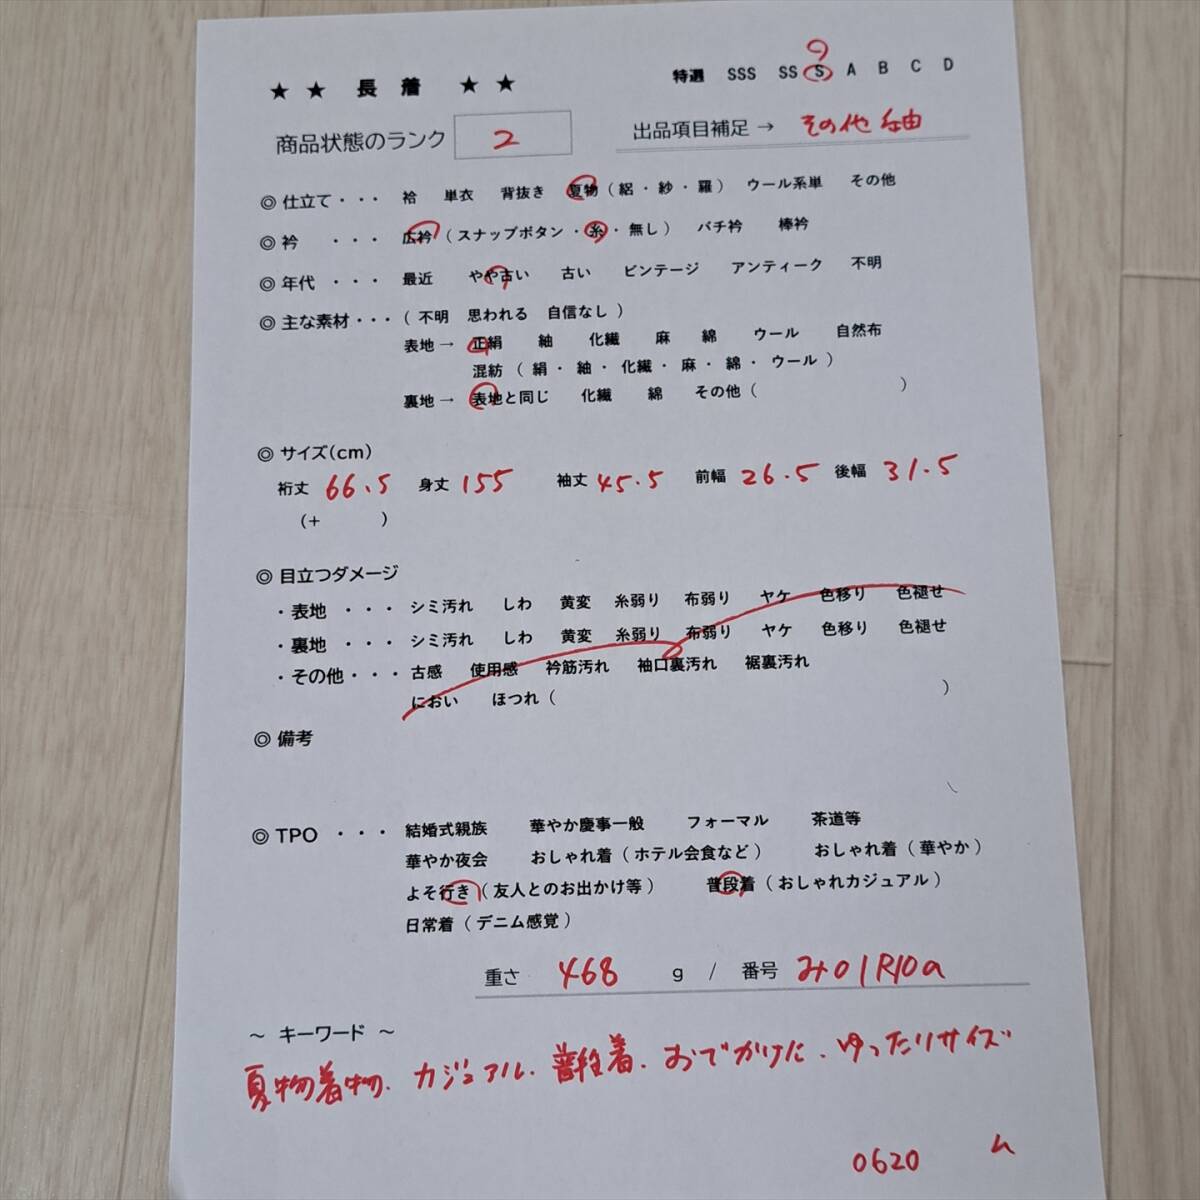 ★ ★ 長 着 ★ ★
特選 SSS SS S A B C D
商品状態のランク 2 出品項目補足 → その他
◎ 仕立て・・・ 袷 単衣 背抜き 夏物(絽・紗・羅) ウール系単 その他
◎ 衿 ・・・ 広衿(スナップボタン・糸・無し) バチ衿 棒衿
◎ 年代 ・・・ 最近 やや古い 古い ビンテージ アンティーク 不明
◎ 主な素材・・・(不明 思われる 自信なし)
表地→ 正絹 紬 化繊 麻 綿 ウール 自然布
混紡(絹・紬・化繊・麻・綿・ウール)
裏地→ 表地と同じ 化繊 綿 その他( )
◎ サイズ(cm)
裄丈 66.5 身丈 155 袖丈 45.5 前幅 26.5 後幅 31.5
(+ )
◎ 目立つダメージ
・表地 ・・・ シミ汚れ しわ 黄変 糸弱り 布弱り ヤケ 色移り 色褪せ
・裏地 ・・・ シミ汚れ しわ 黄変 糸弱り 布弱り ヤケ 色移り 色褪せ
・その他・・・ 古感 使用感 衿筋汚れ 袖口裏汚れ 裾裏汚れ
におい ほつれ( )
◎ 備考
◎ TPO ・・・ 結婚式親族 華やか慶事一般 フォーマル 茶道等
華やか夜会 おしゃれ着(ホテル会食など) おしゃれ着(華やか)
よそ行き(友人とのお出かけ等) 普段着(おしゃれカジュアル)
日常着(デニム感覚)
重さ 468 g / 番号 み01R10a
～ キーワード ～
夏物着物. カジュアル. 普段着. おでかけに. ゆったりサイズ
0620 ム